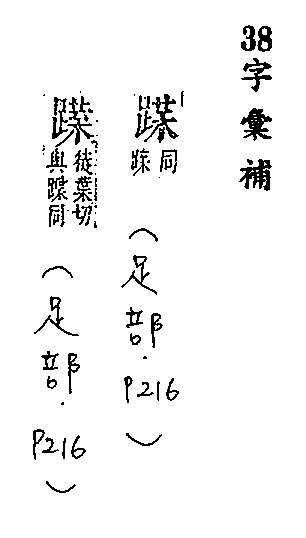 38字彙補
同
(足部.P216)
徒葉切
與蹀同
(足部.P216)